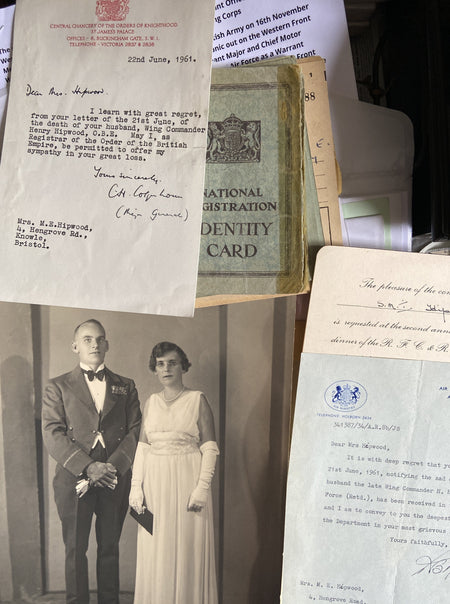 CENTRAL CHANCERY OF THE ORDERS OF KNIGHTHOOD
OFFICES - 8, BUCKINGHAM GATE, S.W.1.
TELEPHONE - VICTORIA 2837 & 2838
22nd June, 1961.
Dear Mrs. Hipwood,
I learn with great regret,
from your letter of the 21st June, of
the death of your husband, Wing Commander
Henry Hipwood, O.B.E. May I, as
Registrar of the Order of the British
Empire, be permitted to offer my
sympathy in your great loss.
Yours sincerely,
Mrs. M.E.Hipwood,
4, Hengrove Rd.,
Knowle,
Bristol.
ing Corps
itish Army on 16th November
anic out on the Western Front
ant Major and Chief Motor
Air Force as a Warrant
NATIONAL
REGISTRATION
IDENTITY
CARD
The pleasure of the co
is requested at the second ann
dinner of the R. F. C. & R.
AIR
TELEPHONE: HOLBORN 3434
341387/34/A.R.8b/JS
Dear Mrs Hipwood,
It is with deep regret that yo
21st June, 1961, notifying the sad
husband the late Wing Commander H. H
Force (Retd.), has been received in
and I am to convey to you the deepest
the Department in your most grievous
Yours faithfully,
Mrs. M. E. Hipwood,
4, Hengrove Road,